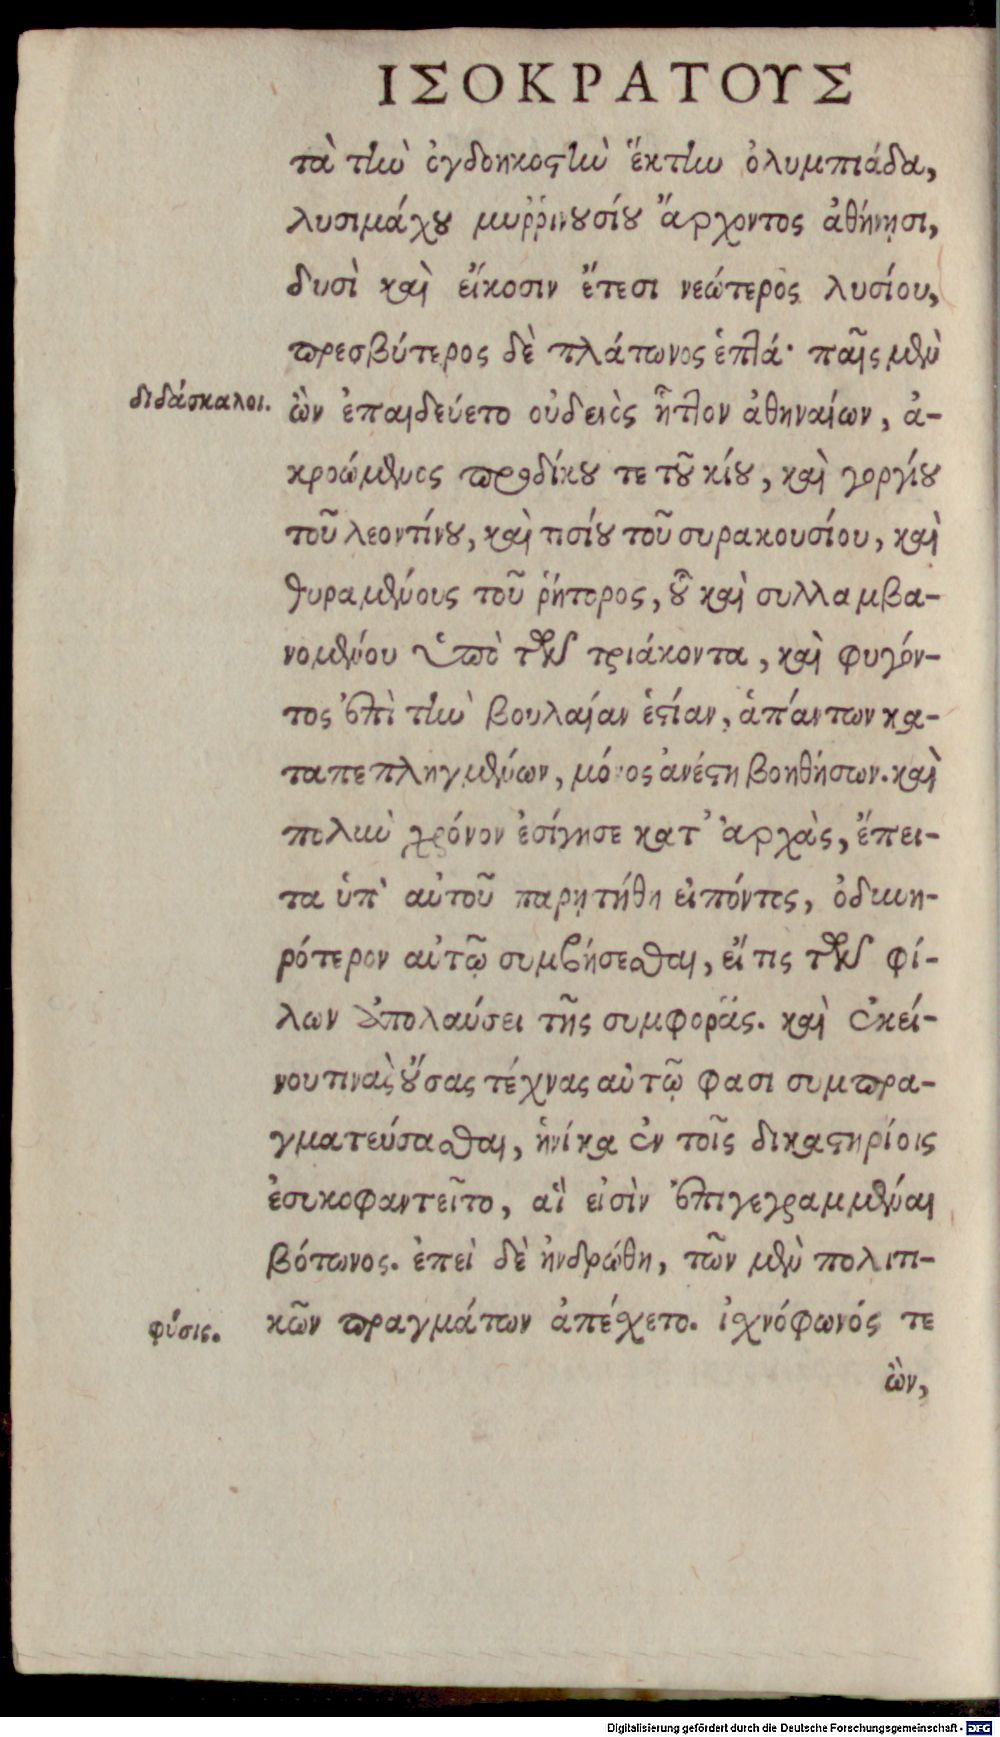 ΙΣΟΚΡΑΤΟΥΣ
τὰ τὴν ὀγδοηκοστὴν ἕκτην ὀλυμπιάδα,
λυσιμάχου μυῤῥινουσίου ἄρχοντος ἀθήνησι,
δυσὶ καὶ εἴκοσιν ἔτεσι νεώτερος λυσίου,
πρεσβύτερος δὲ πλάτωνος ἑπτά· παῖς μὲν
διδάσκαλοι.
ὢν ἐπαιδεύετο οὐδενὸς ἧττον ἀθηναίων, ἀ-
κροώμενος προδίκου τε τοῦ κίου, καὶ γοργίου
τοῦ λεοντίνου, καὶ τισίου τοῦ συρακουσίου, καὶ
θυραμένους τοῦ ῥήτορος, οὗ καὶ συλλαμβα-
νομένου ὑπὸ τῶν τριάκοντα, καὶ φυγόν-
τος ἐπὶ τὴν βουλαίαν ἑστίαν, ἁπάντων κα-
ταπεπληγμένων, μόνος ἀνέστη βοηθήσων. καὶ
πολὺν χρόνον ἐσίγησε κατ' ἀρχὰς, ἔπει-
τα ὑπ' αὐτοῦ παρῃτήθη εἰπόντος, ὀδυνη-
ρότερον αὐτῷ συμβήσεσθαι, εἴ τις τῶν φί-
λων ἀπολαύσει τῆς συμφορᾶς. καὶ ἐκεί-
νου τινὰς οὔσας τέχνας αὐτῷ φασι συμπρα-
γματεύσασθαι, ἡνίκα ἐν τοῖς δικαστηρίοις
ἐσυκοφαντεῖτο, αἵ εἰσὶν ἐπιγεγραμμέναι
βότωνος. ἐπεὶ δὲ ἠνδρώθη, τῶν μὲν πολιτι-
φύσις.
κῶν πραγμάτων ἀπέχετο. ἰσχνόφωνός τε
ὢν,
Digitalisierung gefördert durch die Deutsche Forschungsgemeinschaft - DFG